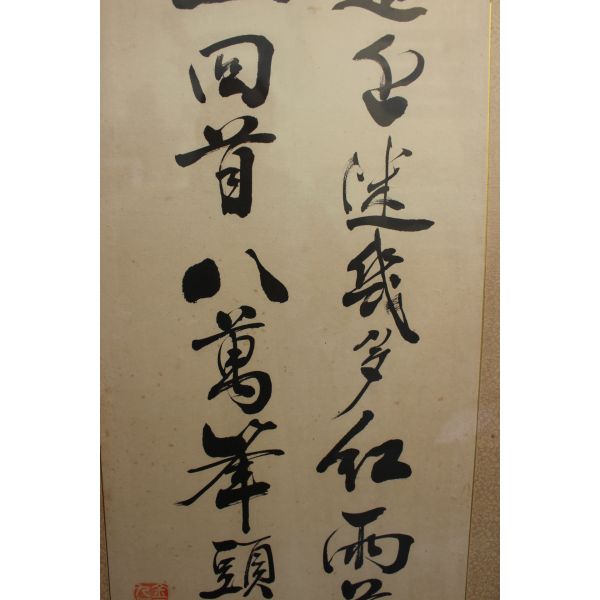 迷幾多紅雨
回首八萬峯頭